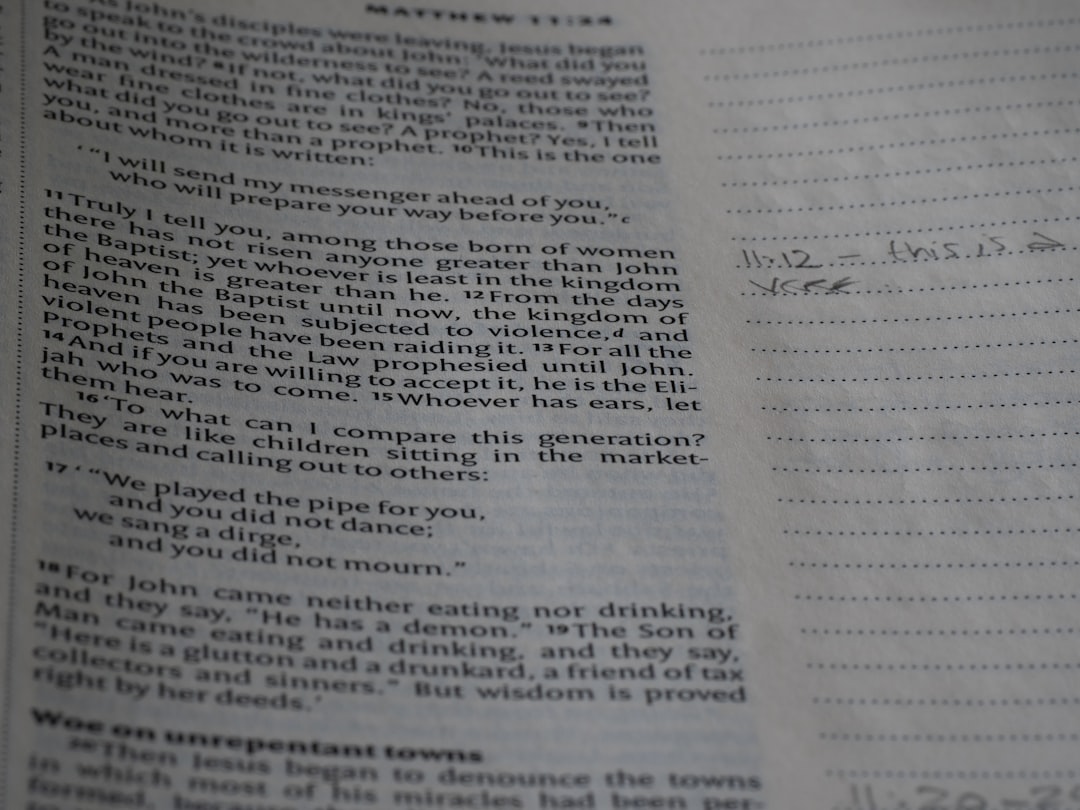 MATTHEW 11:24
As John's disciples were leaving, Jesus began
to speak to the crowd about John: 'What did you
go out into the wilderness to see? A reed swayed
by the wind? 8 If not, what did you go out to see?
A man dressed in fine clothes? No, those who
wear fine clothes are in kings' palaces. 9 Then
what did you go out to see? A prophet? Yes, I tell
you, and more than a prophet. 10 This is the one
about whom it is written:
' "I will send my messenger ahead of you,
who will prepare your way before you." c
11 Truly I tell you, among those born of women
there has not risen anyone greater than John
the Baptist; yet whoever is least in the kingdom
of heaven is greater than he. 12 From the days
of John the Baptist until now, the kingdom of
heaven has been subjected to violence, d and
violent people have been raiding it. 13 For all the
Prophets and the Law prophesied until John.
14 And if you are willing to accept it, he is the Eli-
jah who was to come. 15 Whoever has ears, let
them hear.
16 'To what can I compare this generation?
They are like children sitting in the market-
places and calling out to others:
17 ' "We played the pipe for you,
and you did not dance;
we sang a dirge,
and you did not mourn."
18 For John came neither eating nor drinking,
and they say, "He has a demon." 19 The Son of
Man came eating and drinking, and they say,
"Here is a glutton and a drunkard, a friend of tax
collectors and sinners." But wisdom is proved
right by her deeds.'
Woe on unrepentant towns
20 Then Jesus began to denounce the towns
in which most of his miracles had been per-
formed, because
11:12 - this is a
11:20-